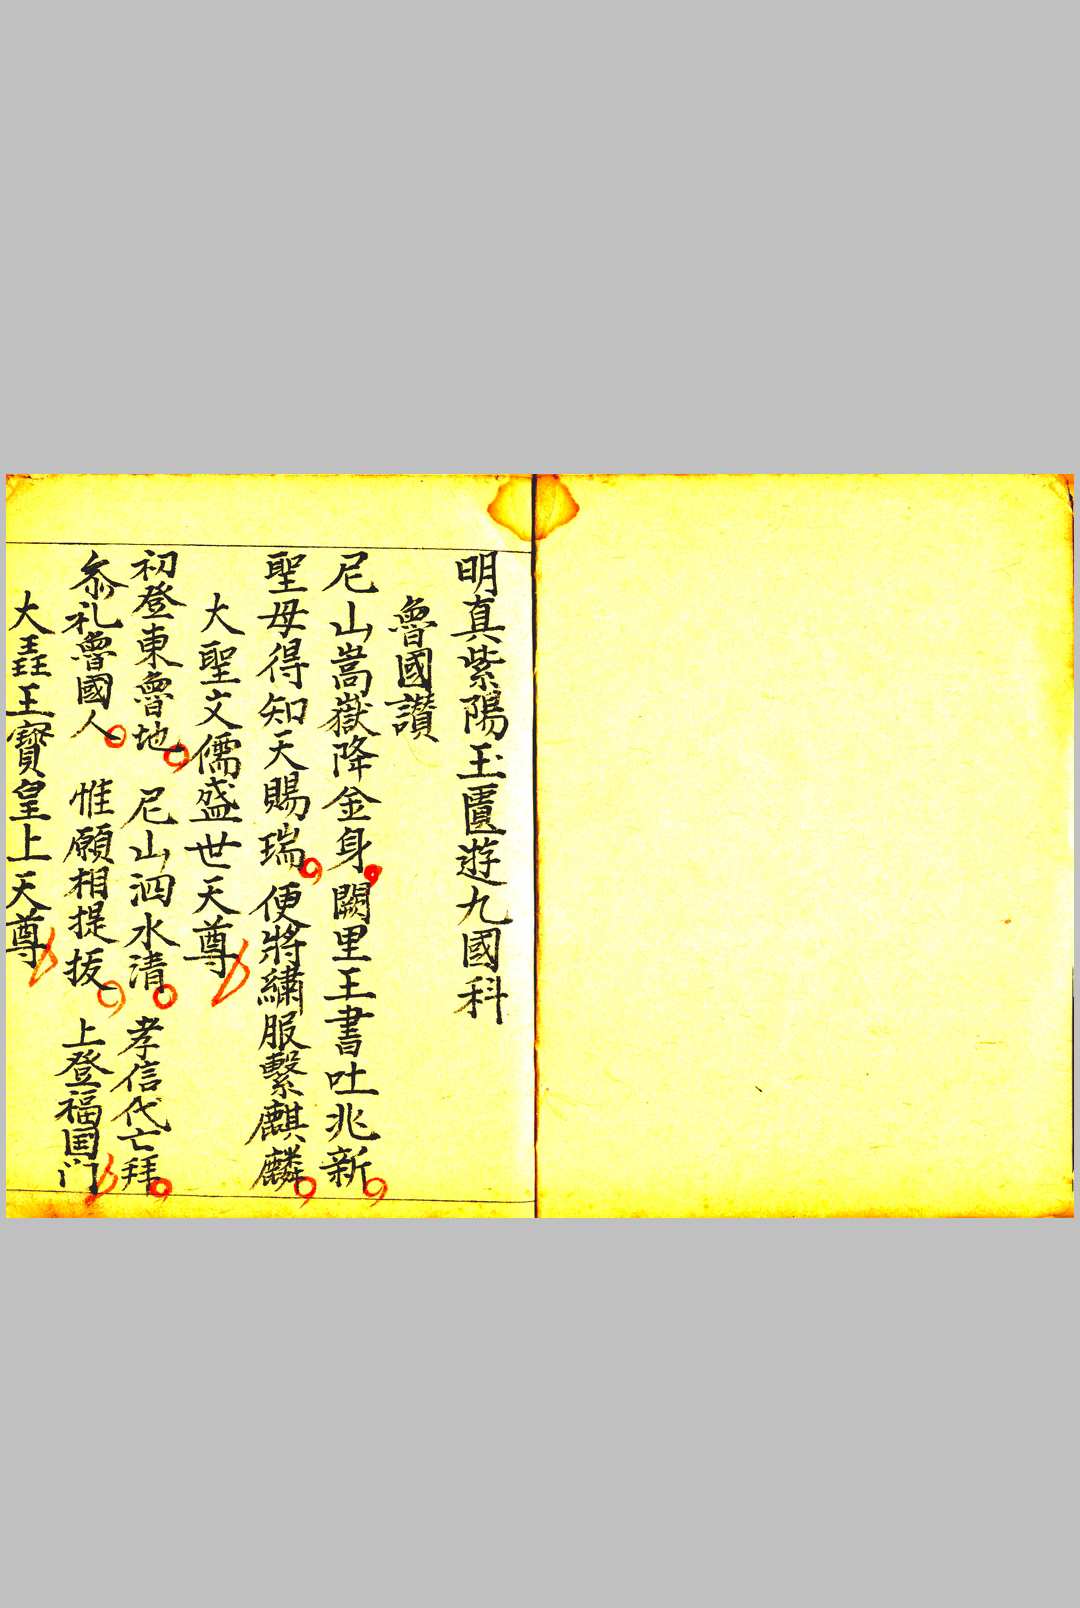 明真紫陽玉匱遊九國科
魯國讃
尼山嵩嶽降金身闕里王書吐兆新
聖母得知天賜瑞便將繡服繫麒麟
大聖文儒盛世天尊
初登東魯地尼山泗水清孝信代亡拜
叅礼魯國人惟願相提拔上登福国门
大㠭王寳皇上天尊